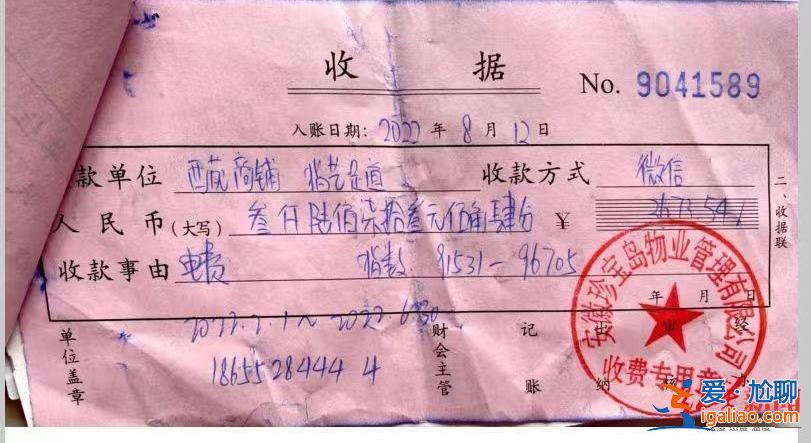 收 据
No. 9041589
入账日期: 2022 年 8 月 12 日
款单位 西苑商铺 指艺足道 收款方式 微信
人 民 币 (大写) 叁仟陆佰柒拾叁元伍角肆分 ¥ 3673.54
收款事由 电费 指数 91531-96705
年 月 日
2022.2.1~2022.6.30
18655284444
单位盖章
财会主管
记 账
出 纳
经
二、收据联
安徽珍宝岛物业管理有限公司
收费专用章
爱·尬聊
igaliao.com